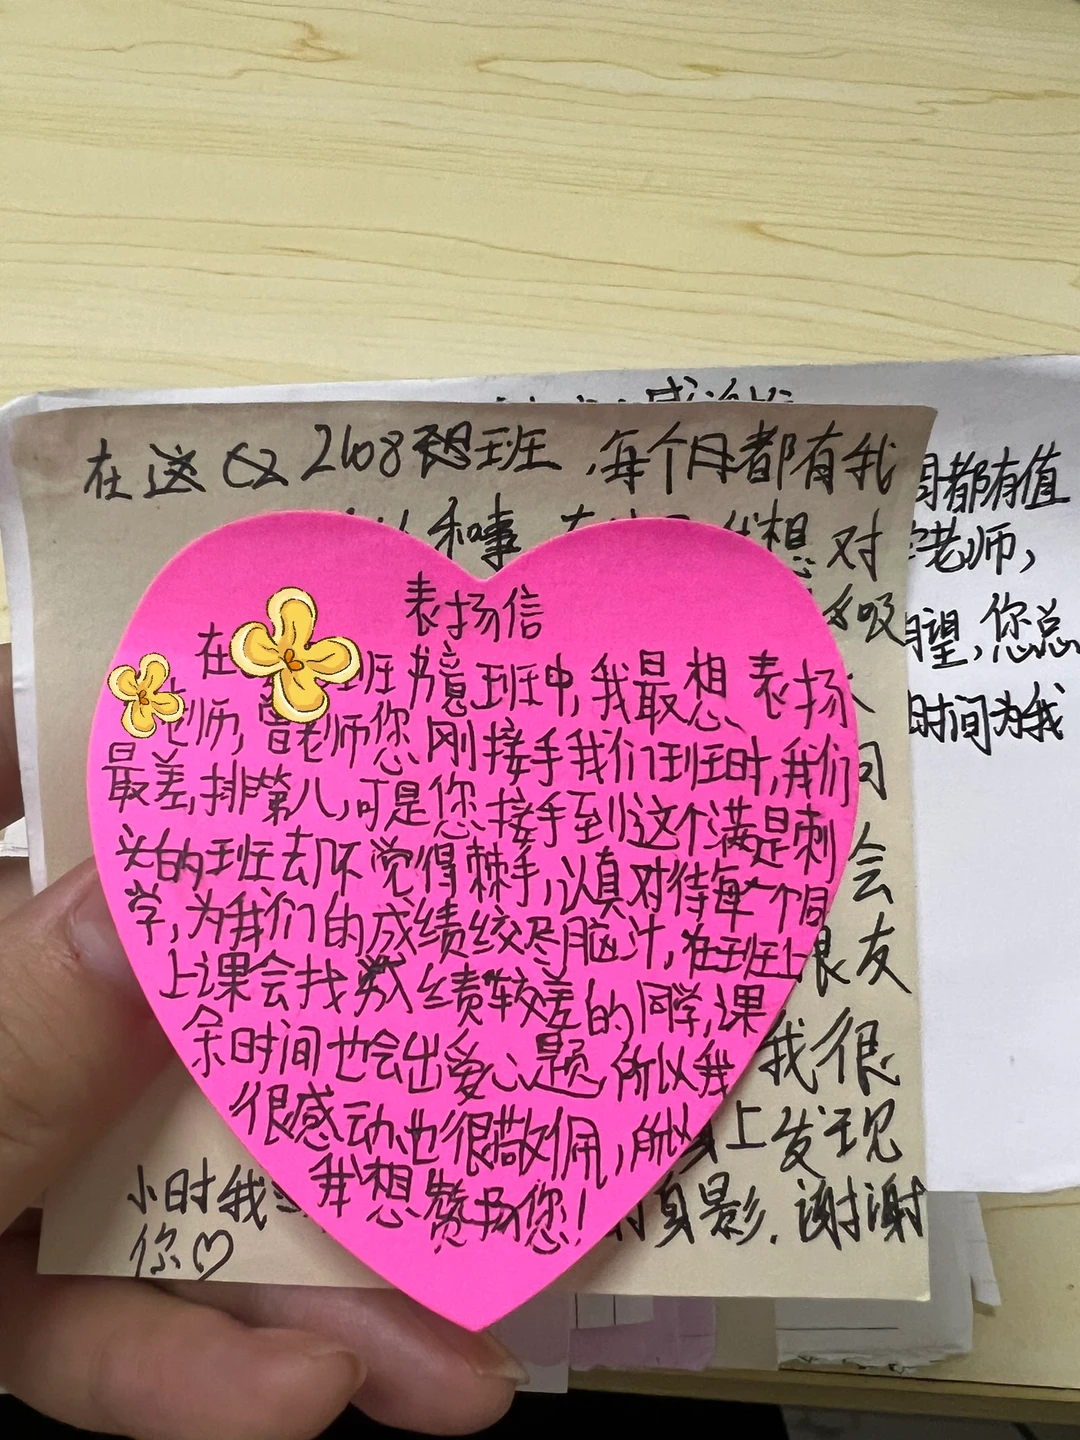 感谢信
在这亿2108班，每个月都有我
和事
我想对
吸
会
很友
我很
身上发现
小时我
真影.谢谢
你♡
表扬信
在
班书意班中,我最想表扬
老师,曾老师您刚接手我们班时,我们
最差,排第八,可是您接手到这个满是刺
头的班去际觉得棘手,认真对待每个同
学,为我们的成绩绞尽脑汁,在班上
上课会找成绩较差的同学,课
余时间也会出爱心题,所以我
很感动,也很敬佩,所以
我想赞扬您!
周都有值
老师,
期望,您总
时间为我